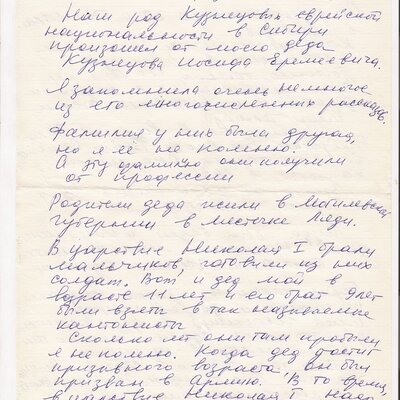 Наш род Кузнецовых еврейской
национальности в Сибири
произошел от моего деда
Кузнецова Иосифа Еремеевича.
Я запомнила очень немногое
из его многочисленных рассказов.
Фамилия у них была другая,
но я её не помню.
А эту фамилию они получили
от профессии
Родители деда жили в Могилевской
губернии в местечке Ляды.
В царствие Николая I брали
мальчиков, готовили из них
солдат. Вот и дед мой в
возрасте 11 лет и его брат 9 лет
были взяты в так называемые
кантонисты
Сколько лет они там пробыли
я не помню. Когда дед достиг
призывного возраста, он был
призван в армию. В то время,
в царствие Николая I надо